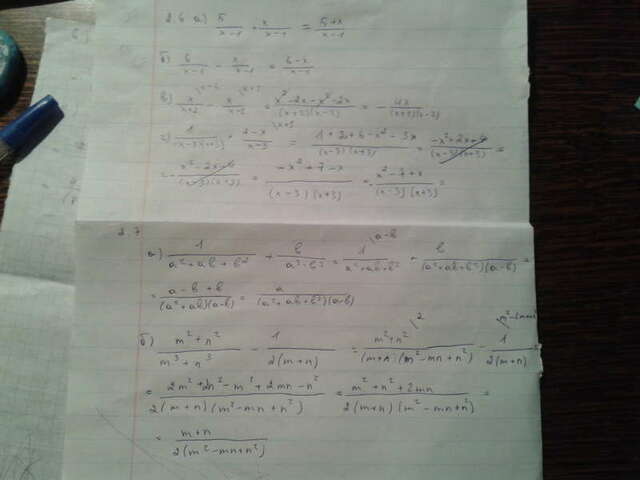 2.6 а) 5/(x-1) + x/(x-1) = (5+x)/(x-1)
б) 6/(x-1) - x/(x-1) = (6-x)/(x-1)
в) x/(x+2) \x-2 - x/(x-2) \x+2 = (x²-2x-x²-2x)/((x+2)(x-2)) = - 4x/((x+2)(x-2))
2-x/(x-3) \x+3 = (1+2x+6-x²-3x)/((x-3)(x+3)) = (-x²+2x+6)/((x-3)(x+3)) =
= (-x²+7-x)/((x-3)(x+3)) = - (x²-7+x)/((x-3)(x+3)) =
2.7
а) 1/(a²+ab+b²) + b/(a³-b³) = 1/(a²+ab+b²) \a-b + b/((a²+ab+b²)(a-b)) =
= (a-b+b)/((a²+ab)(a-b)) = a/((a²+ab+b²)(a-b))
б) (m²+n²)/(m³+n³) - 1/(2(m+n)) = (m²+n²)/((m+n)(m²-mn+n²)) \2 - 1/(2(m+n)) =
= (2m²+2n²-m²+2mn-n²)/(2(m+n)(m²-mn+n²)) = (m²+n²+2mn)/(2(m+n)(m²-mn+n²)) =
= (m+n)/(2(m²-mn+n²))